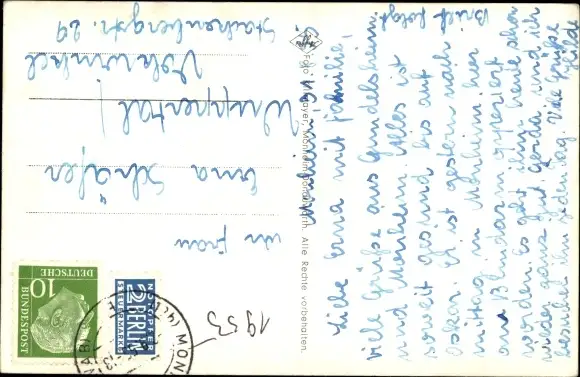 Monheim
Liebe Erna mit Familie!
viele Grüße aus Gundelsheim
und Monheim. Alles ist
soweit gesund bis auf
Oskar. Er ist gestern nach
mittag in Monheim hier
am Blinddarm operiert
worden. Es geht ihm heute schon
wieder ganz gut. Gerda und ich
besuchen ihn jeden Tag. Viele Grüße
Brief folgt
Foto
Mayer, Monheim
Alle Rechte vorbehalten.
An Frau
Erna Schäfer
Wuppertal
Vohwinkel
Stackenbergstr. 29
1953
10
DEUTSCHE
BUNDESPOST
NOTOPFER
2 BERLIN
STEUERMARKE
MON